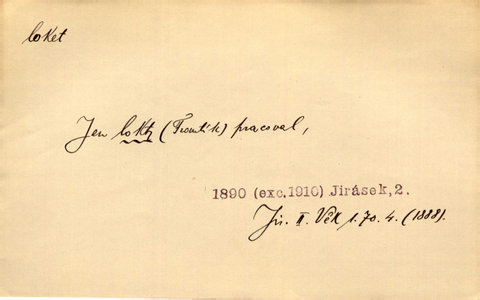 loket
Jen lokty (Frontík) pracoval,
1890 (exc.1910) Jirásek,2.
Jir. F. Věk 1. 70. 4. (1888).